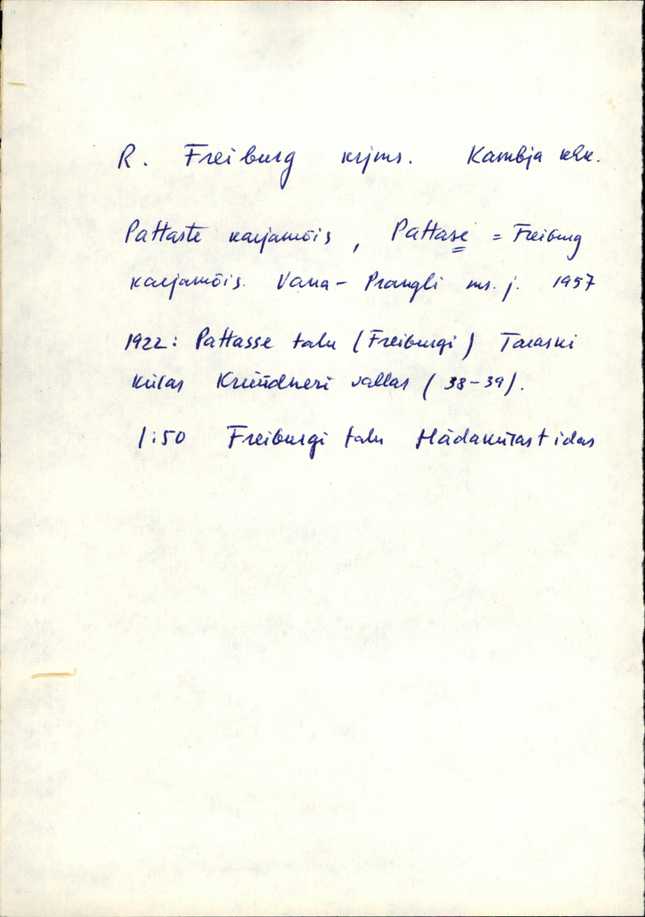 R. Freiburg krjms. Kambja khk.
Pattaste karjamõis, Pattase = Freiburg
karjamõis. Vana-Prangli ms. j. 1957
1922: Pattasse talu (Freiburgi) Taraski
külas Krüüdneri vallas (38-39).
1:50 Freiburgi talu Hädakülast idas